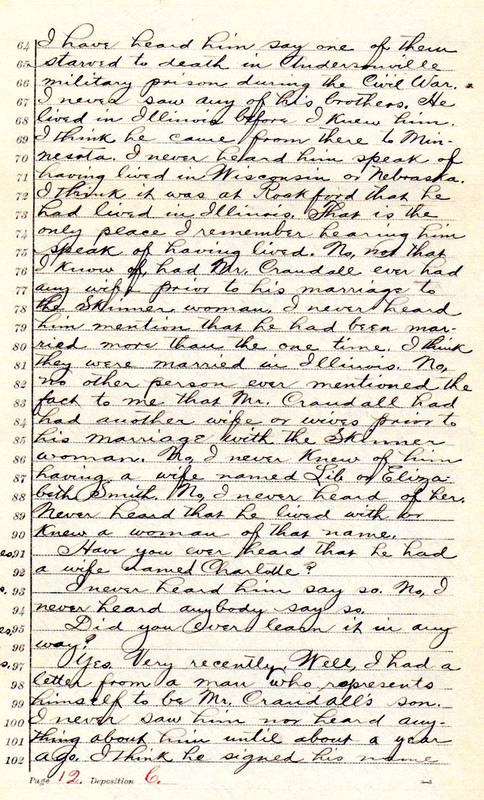 64 I have heard him say one of them
65 starved to death in Andersonville
66 military prison during the Civil War.
67 I never saw any of his brothers. He
68 lived in Illinois before I knew him.
69 I think he came from there to Min-
70 nesota. I never heard him speak of
71 having lived in Wisconsin or Nebraska.
72 I think it was at Rockford that he
73 had lived in Illinois. That is the
74 only place I remember hearing him
75 speak of having lived. No, not that
76 I know of, had Mr. Crandall ever had
77 any wife prior to his marriage to
78 the Skinner woman. I never heard
79 him mention that he had been mar-
80 ried more than the one time. I think
81 they were married in Illinois. No,
82 no other person ever mentioned the
83 fact to me that Mr. Crandall had
84 had another wife or wives prior to
85 his marriage with the Skinner
86 woman. No, I never knew of him
87 having a wife named Lib or Eliza-
88 beth Smith. No, I never heard of her.
89 Never heard that he lived with or
90 knew a woman of that name.
91 Have you ever heard that he had
92 a wife named Charlotte?
93 I never heard him say so. No, I
94 never heard anybody say so.
95 Did you ever learn it in any
96 way?
97 Yes. Very recently. Well, I had a
98 letter from a man who represents
99 himself to be Mr. Crandall's son.
100 I never saw him nor heard any-
101 thing about him until about a year
102 ago. I think he signed his name
Page 12. Deposition C.